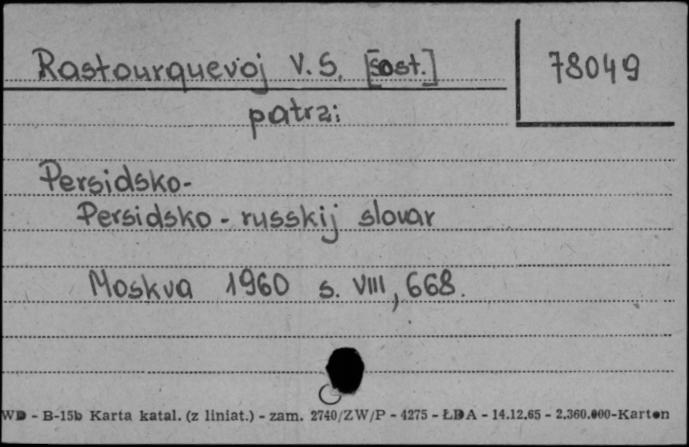 Rastourquevoj V. S. [sost.]
78049
patrz:
Persidsko-
Persidsko - russkij slovar
Moskva 1960 s. VIII, 668.
WD - B-15b Karta katal. (z liniat.) - zam. 2740/ZW/P - 4275 - ŁDA - 14.12.65 - 2.360.000-Karton